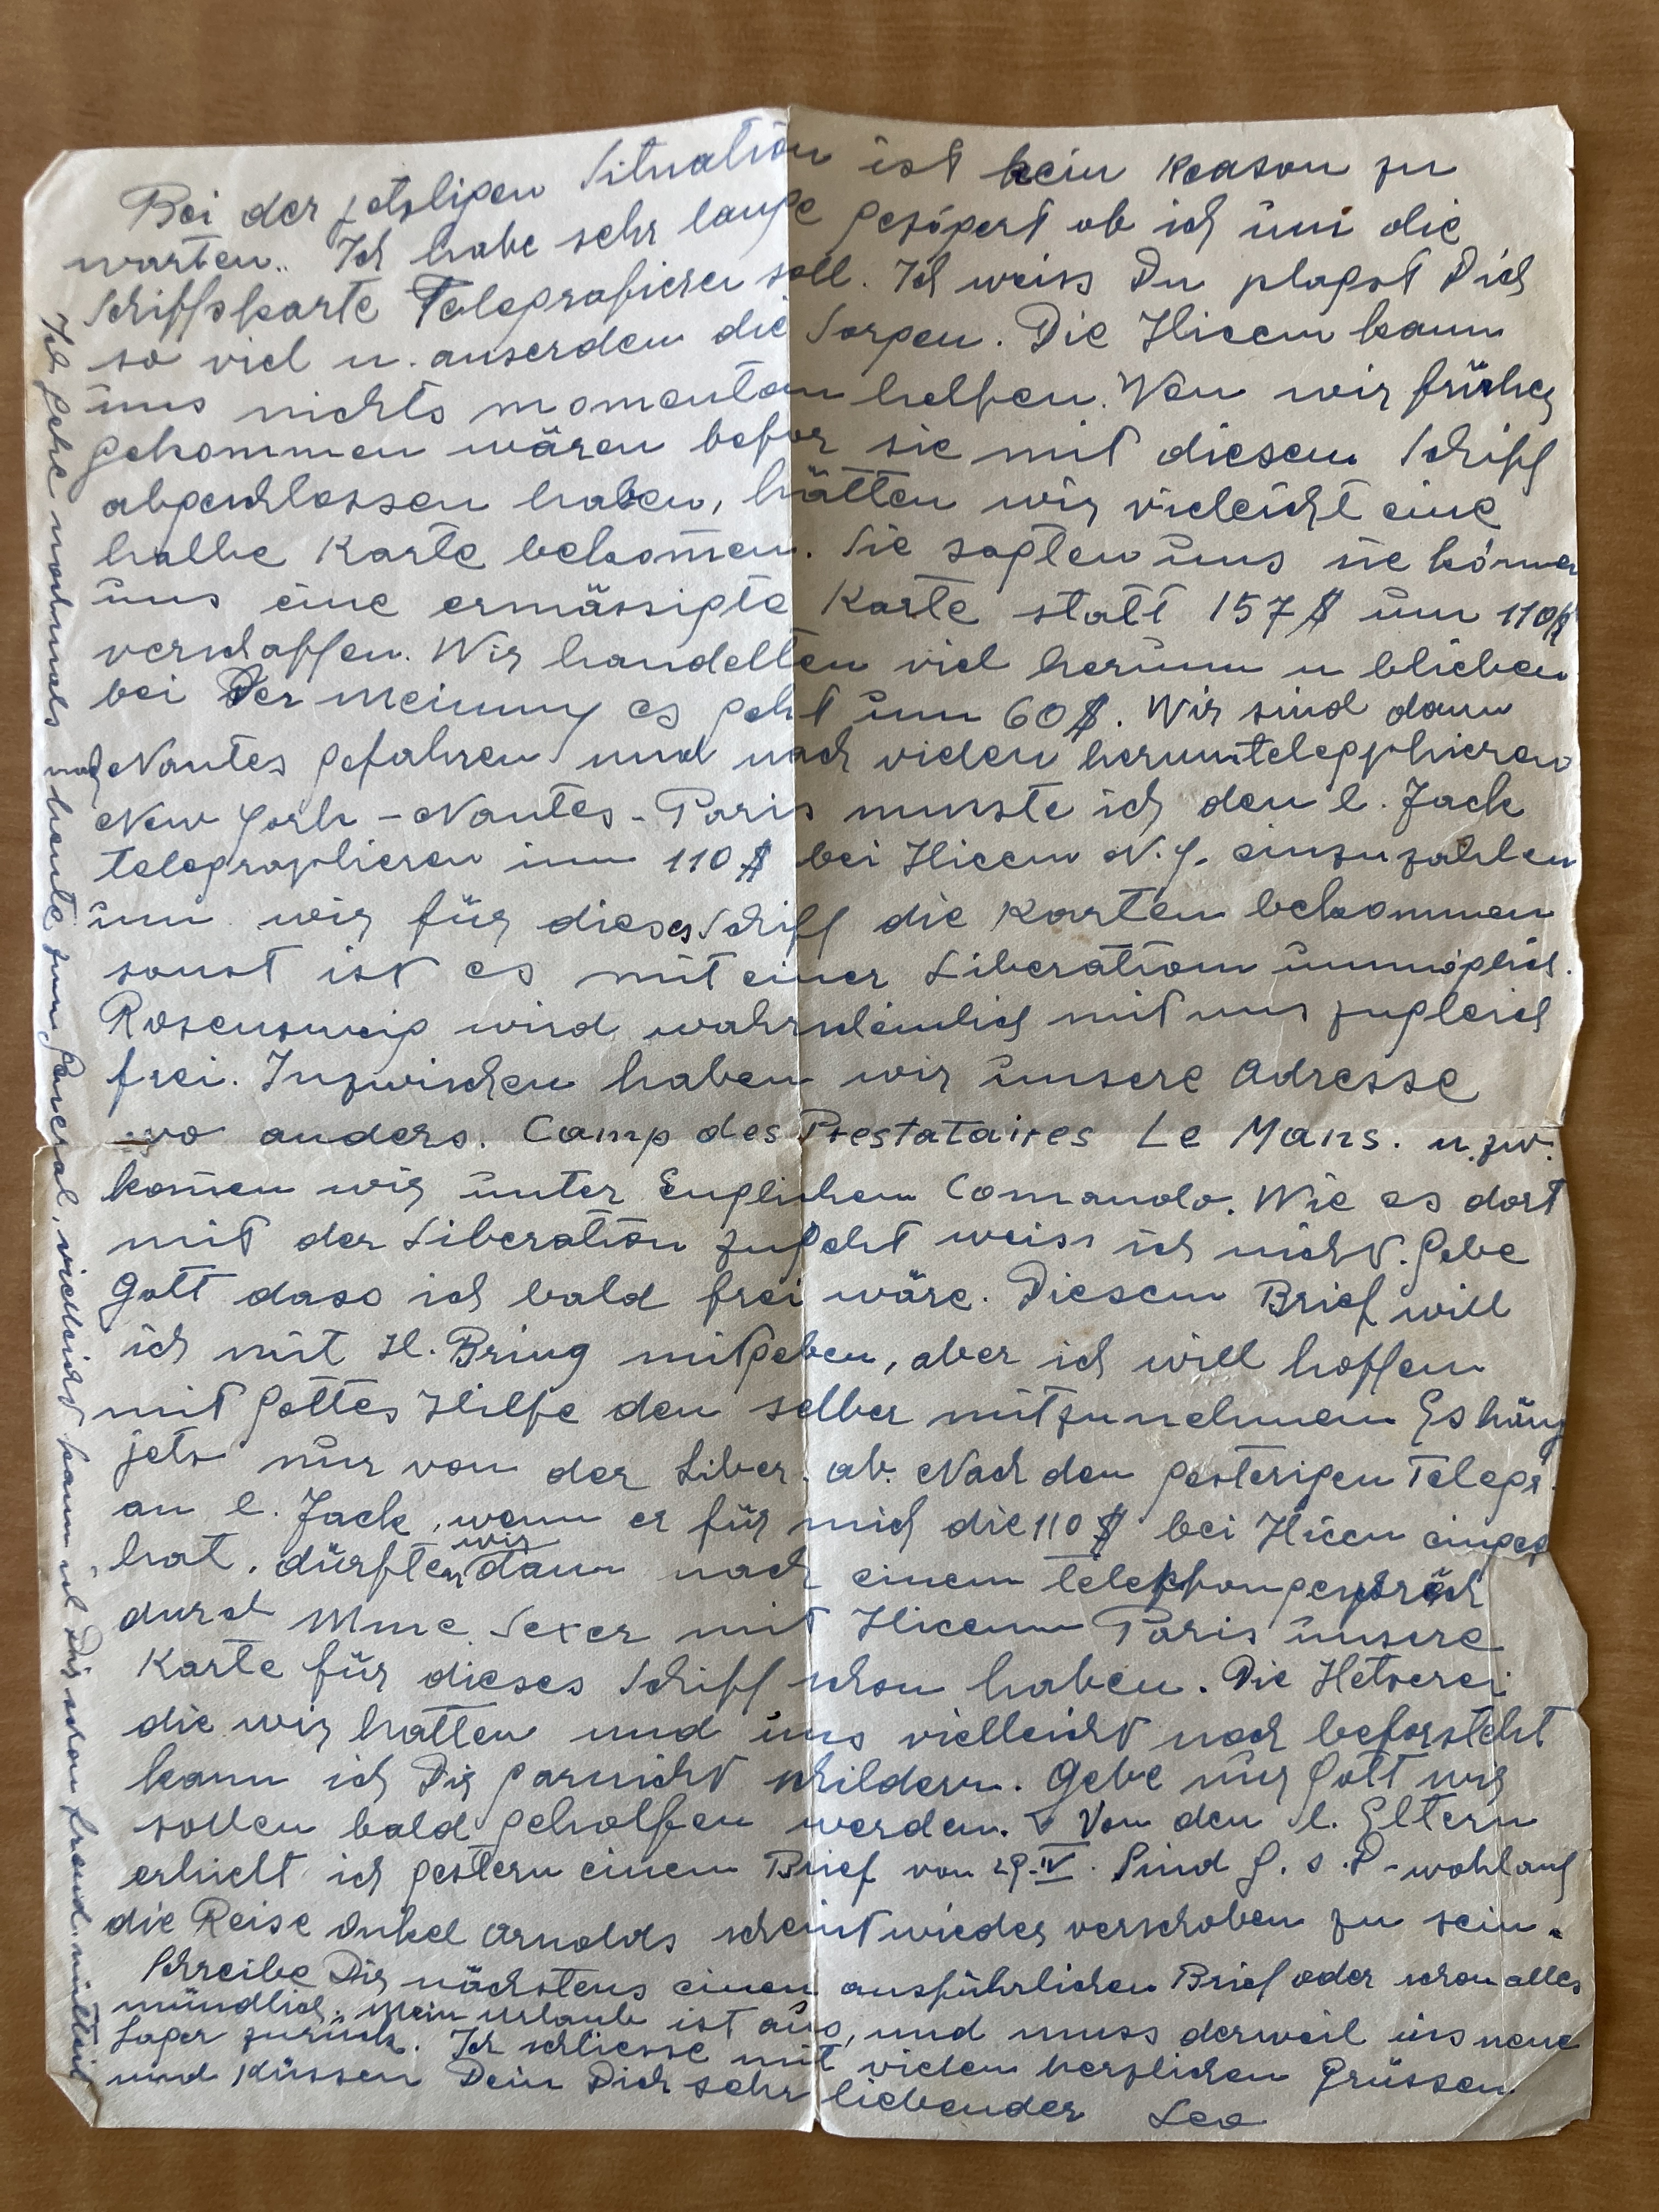 Bei der jetzligen Situation ist kein Reason zu
warten.. Ich habe sehr lange gezögert ob ich um die
Schiffskarte Telegrafieren soll. Ich weiss Du plagst Dich
so viel u. auserdem die Sorgen. Die Hicem kann
uns nichts momentan helfen. Wen wir früher
gekommen wären befor sie mit diesem Schiff
abgeschlossen haben, hätten wir vieleicht eine
halbe Karte bekomen. Sie sagten uns sie können
uns eine ermässigte Karte statt 157$ um 110$
verschaffen. Wir handelten viel herum u blieben
bei der Meinung es geht um 60$. Wir sind dann
nach Nantes gefahren und nach vielen herumtelepphieren
New York - Nantes - Paris musste ich den l. Jack
telegraphieren um 110$ bei Hicem N.Y. einzuzahlen
um wir für dieses Schiff die Karten bekommen
sonst ist es mit einer Liberation unmöglich.
Rosenzweig wird wahrscheinlich mit uns zugleich
frei. Inzwischen haben wir unsere Adresse
wo anders. Camp des Prestataires Le Mans. u. zw.
komen wir unter Englischem Comando. Wie es dort
mit der Liberation zugeht weiss ich nicht. Gebe
Gott dass ich bald frei wäre. Diesem Brief will
ich mit H. Bring mitgeben, aber ich will hoffen
mit Gottes Hilfe den selber mitzunehmen Es häng
jets nur von der Liber. ab. Nach den gesterigen Telegr.
an l. Jack, wenn er für mich die 110$ bei Hicem eingez
hat, dürften wir dann nach einem telephongespräch
durch Mme. Sexer mit Hicem Paris unsere
Karte für dieses Schiff schon haben. Die Hetserei
die wir hatten und uns vielleicht noch beforsteht
kann ich Dir garnicht schildern. Gebe nur Gott wir
sollen bald geholfen werden. Von den l. Eltern
erhielt ich gestern einem Brief von 29.IV. Sind G. s. D - wohlauf
die Reise Onkel Arnolds scheint wieder verschoben zu sein.
Schreibe Dir nächstens einen ausführlichen Brief oder schon alles
mündlich. Mein Urlaub ist aus, und muss derweil ins neue
Lager zurück. Ich schliesse mit vielen herzlichen Grüssen
und Küssen Dein Dich sehr liebender Leo
Ich gehe nochmals heute zum General, vieleicht kann ich Dir schon freud. mitteil